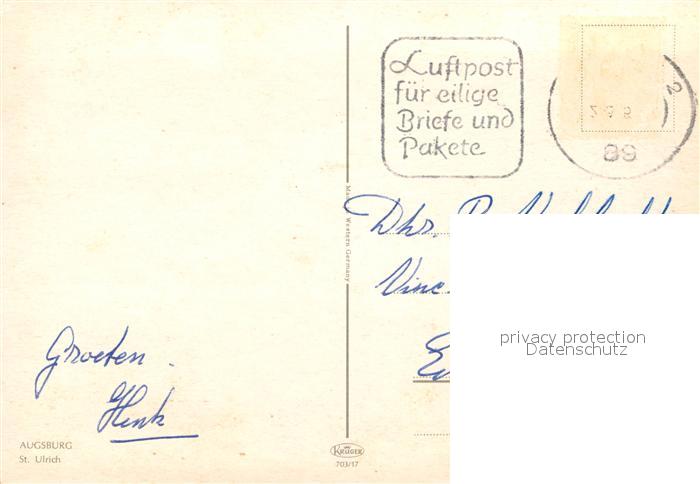 Luftpost
für eilige
Briefe und
Pakete
2
89
Dhr.
Vinc
Made in Western Germany
privacy protection
Datenschutz
Groeten.
Henk
AUGSBURG
St. Ulrich
KRÜGER
703/17